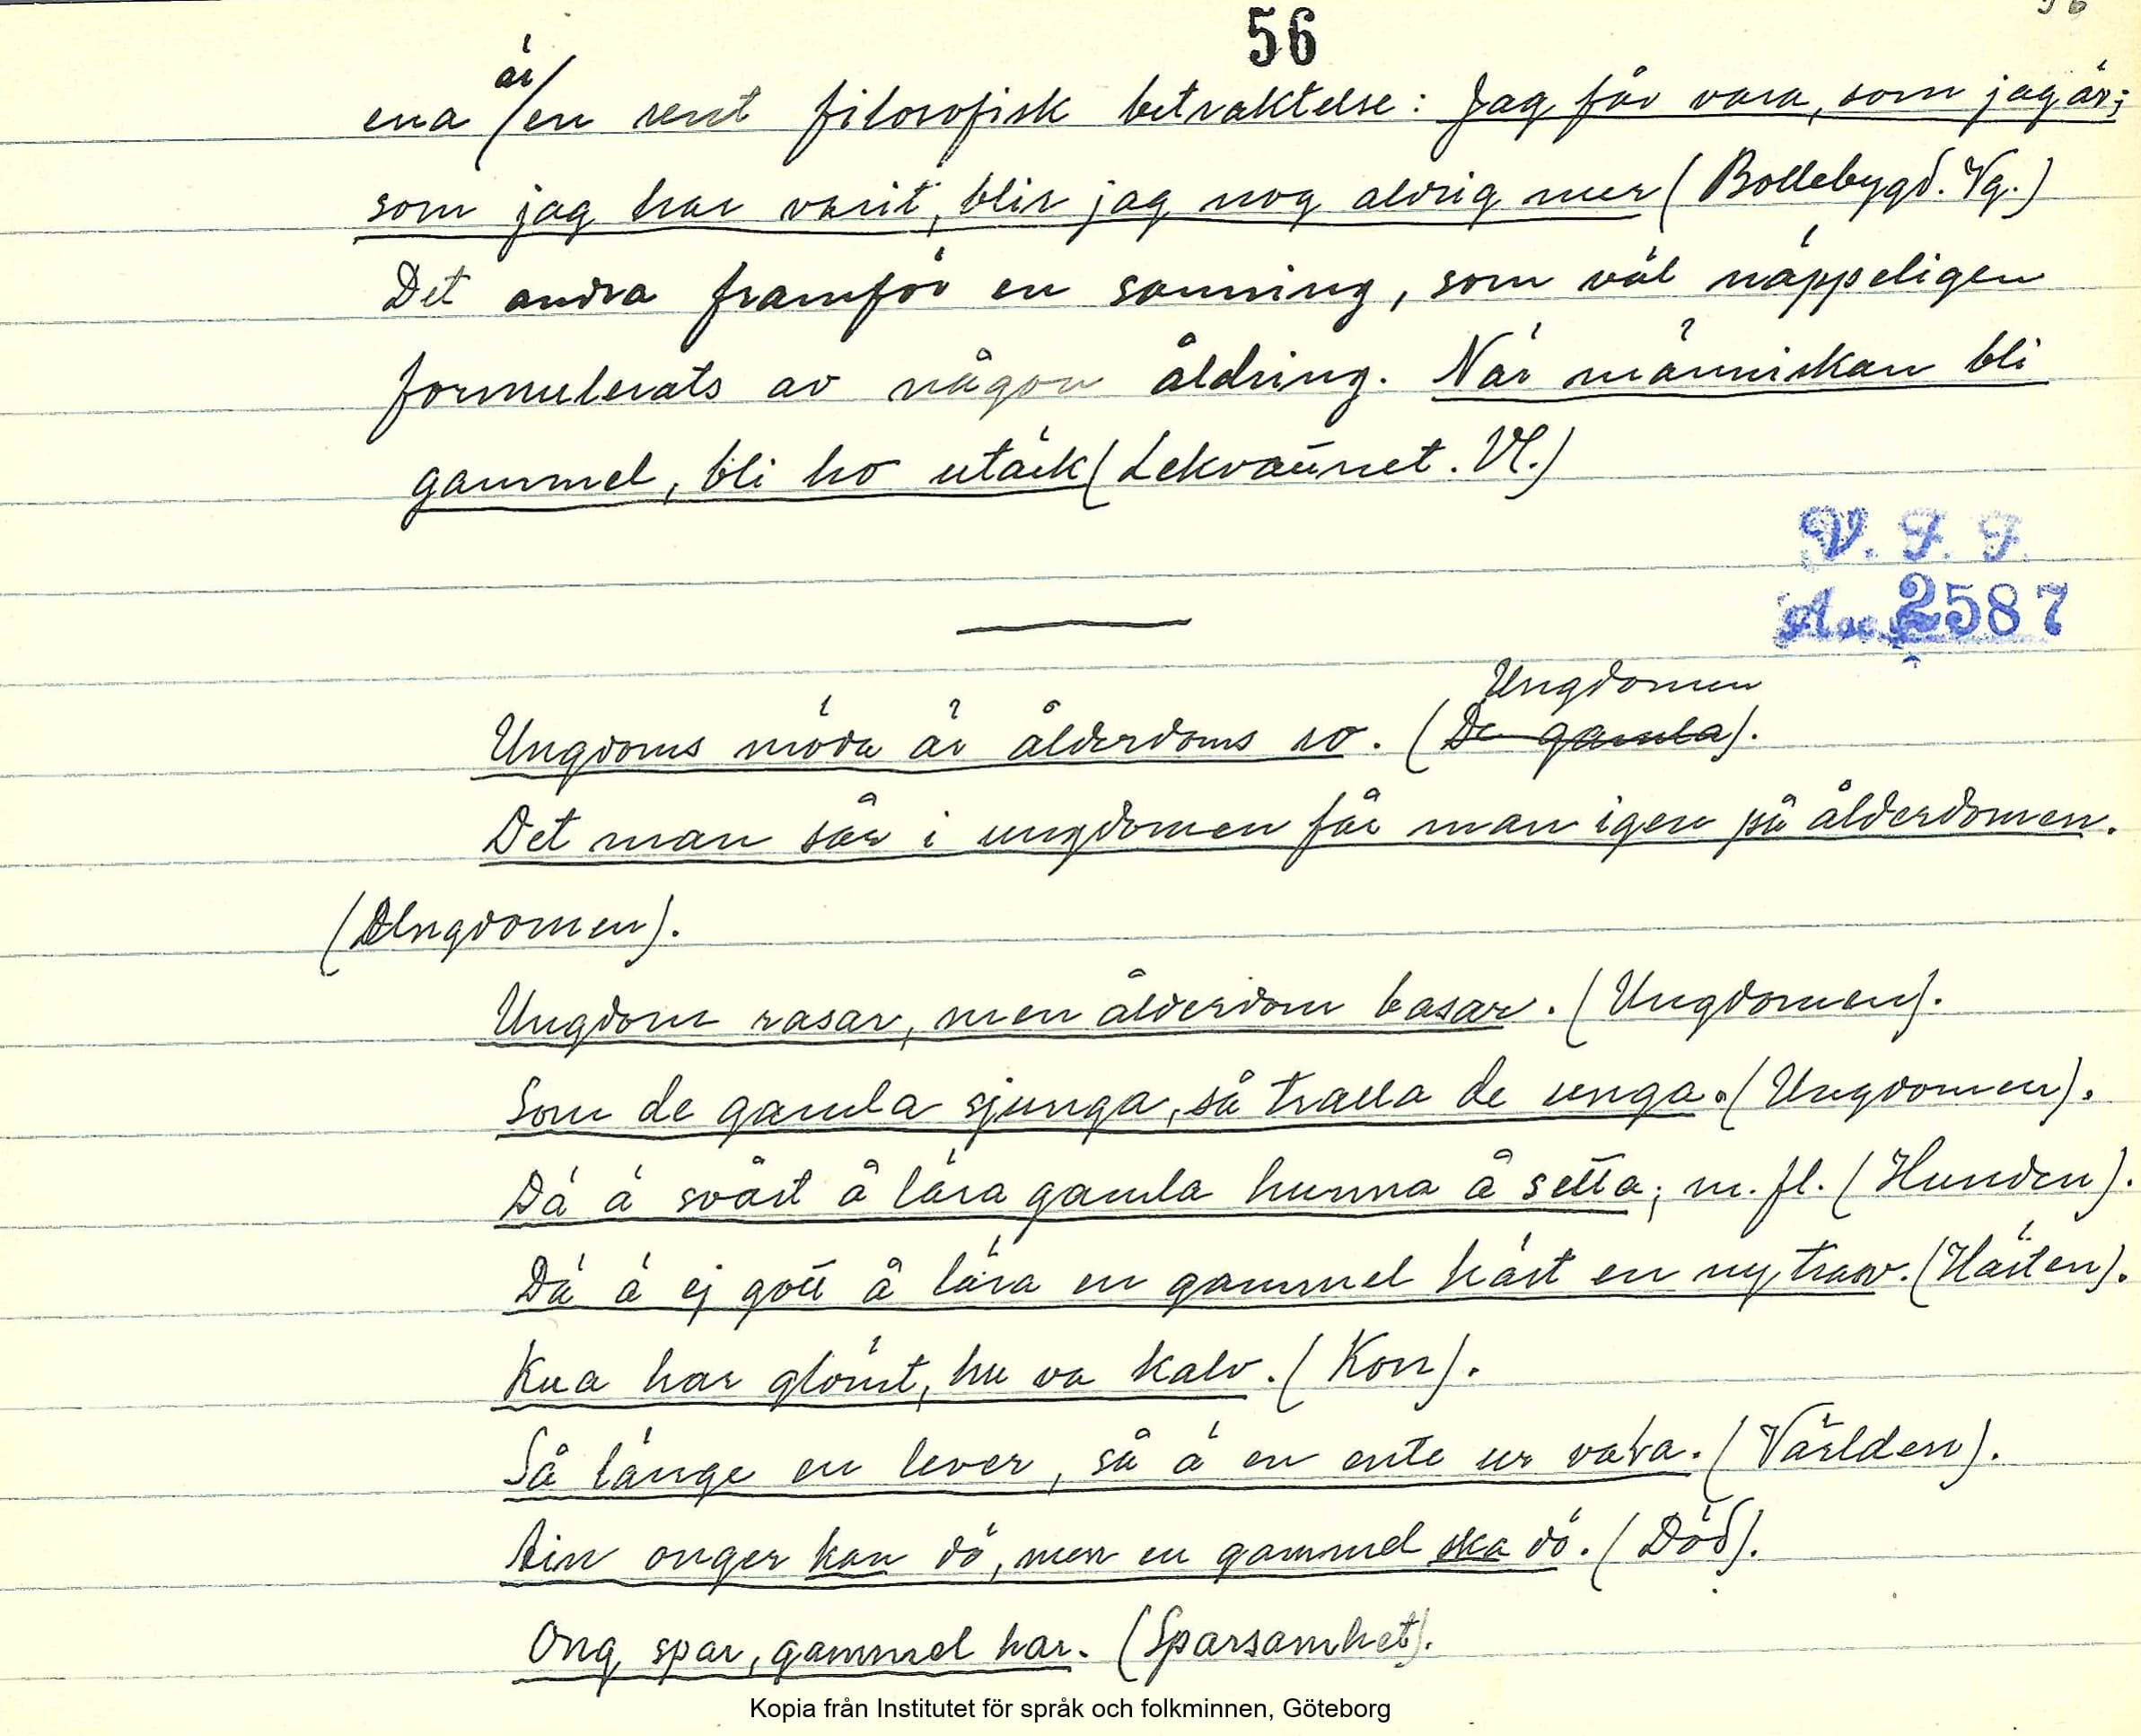 56
är
ena en rent filosofisk betraktelse: Jag får vara, som jag är;
som jag har varit, blir jag nog aldrig mer (Bollebygd. Vg.)
Det andra framför en sanning, som väl näppeligen
formulerats av någon åldring. När människan bli
gammel, bli ho utäck (Lekvattnet. Vl.)
V. F. F.
Acc. 2587
Ungdomen
Ungdoms möda är ålderdoms ro. (De gamla).
Det man sår i ungdomen får man igen på ålderdomen.
(Ungdomen).
Ungdom rasar, men ålderdom basar. (Ungdomen).
Som de gamla sjunga, så tralla de unga. (Ungdomen).
Dä ä svårt å lära gamla hunna å setta; m. fl. (Hunden).
Dä ä ej gott å lära en gammel häst en ny trav. (Hästen).
Kua har glömt, hu va kalv. (Kon).
Så länge en lever, så ä en ente ur vala. (Världen).
Ein onger kan dö, men en gammel ska dö. (Död).
Ong spar, gammel har. (Sparsamhet).
Kopia från Institutet för språk och folkminnen, Göteborg